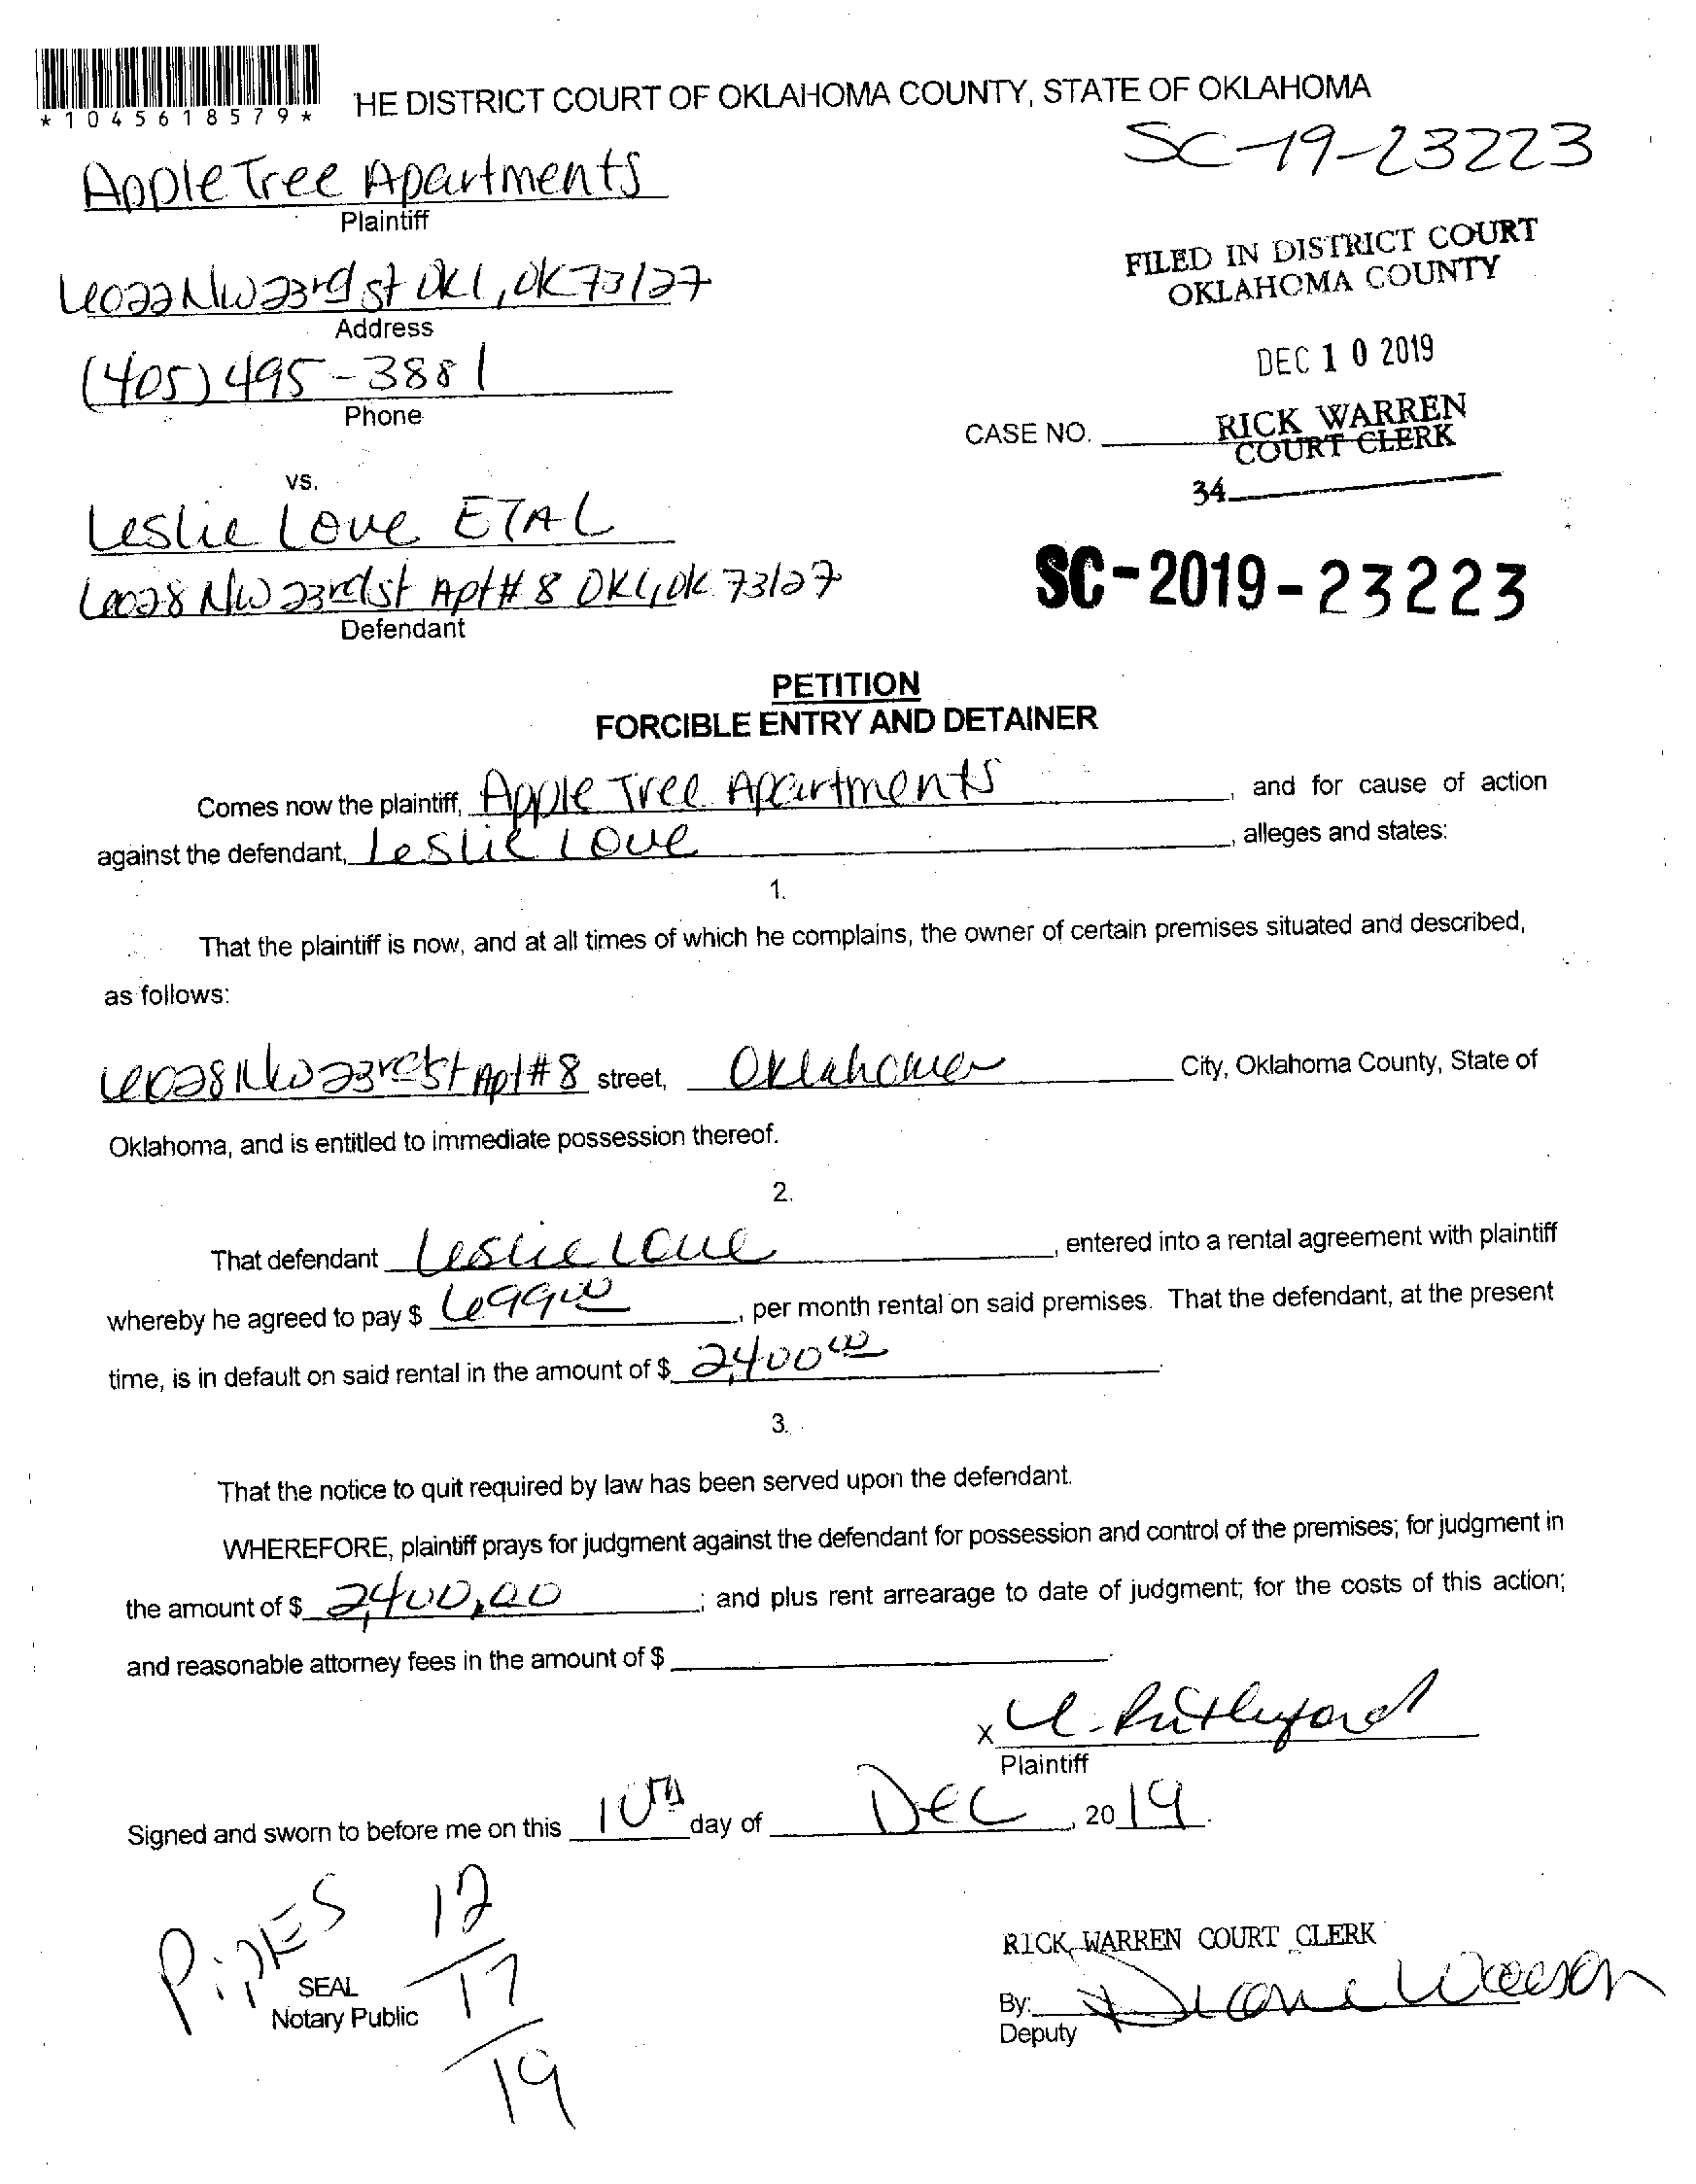 *1045618579*
HE DISTRICT COURT OF OKLAHOMA COUNTY, STATE OF OKLAHOMA
SC-19-23223
Apple Tree Apartments
Plaintiff
FILED IN DISTRICT COURT
OKLAHOMA COUNTY
6022 NW 23rd st OKC, OK 73127
Address
DEC 10 2019
(405) 495-3881
Phone
CASE NO.
RICK WARREN
COURT CLERK
34
vs.
Leslie Love ETAL
6028 NW 23rd st Apt# 8 OKC, OK 73127
Defendant
SC-2019-23223
PETITION
FORCIBLE ENTRY AND DETAINER
Comes now the plaintiff, Apple Tree Apartments, and for cause of action
against the defendant, Leslie Love, alleges and states:
1.
That the plaintiff is now, and at all times of which he complains, the owner of certain premises situated and described,
as follows:
6028 NW 23rd St Apt# 8 street, Oklahoma City, Oklahoma County, State of
Oklahoma, and is entitled to immediate possession thereof.
2.
That defendant Leslie Love, entered into a rental agreement with plaintiff
whereby he agreed to pay $ 699 00, per month rental on said premises. That the defendant, at the present
time, is in default on said rental in the amount of $ 2,400 00.
3.
That the notice to quit required by law has been served upon the defendant.
WHEREFORE, plaintiff prays for judgment against the defendant for possession and control of the premises; for judgment in
the amount of $ 2,400.00; and plus rent arrearage to date of judgment; for the costs of this action;
and reasonable attorney fees in the amount of $
x Rutherford
Plaintiff
Signed and sworn to before me on this 10th day of DEC, 2019.
PiPES 12/17/19
SEAL
Notary Public
RICK WARREN COURT CLERK
By: Diane
Deputy